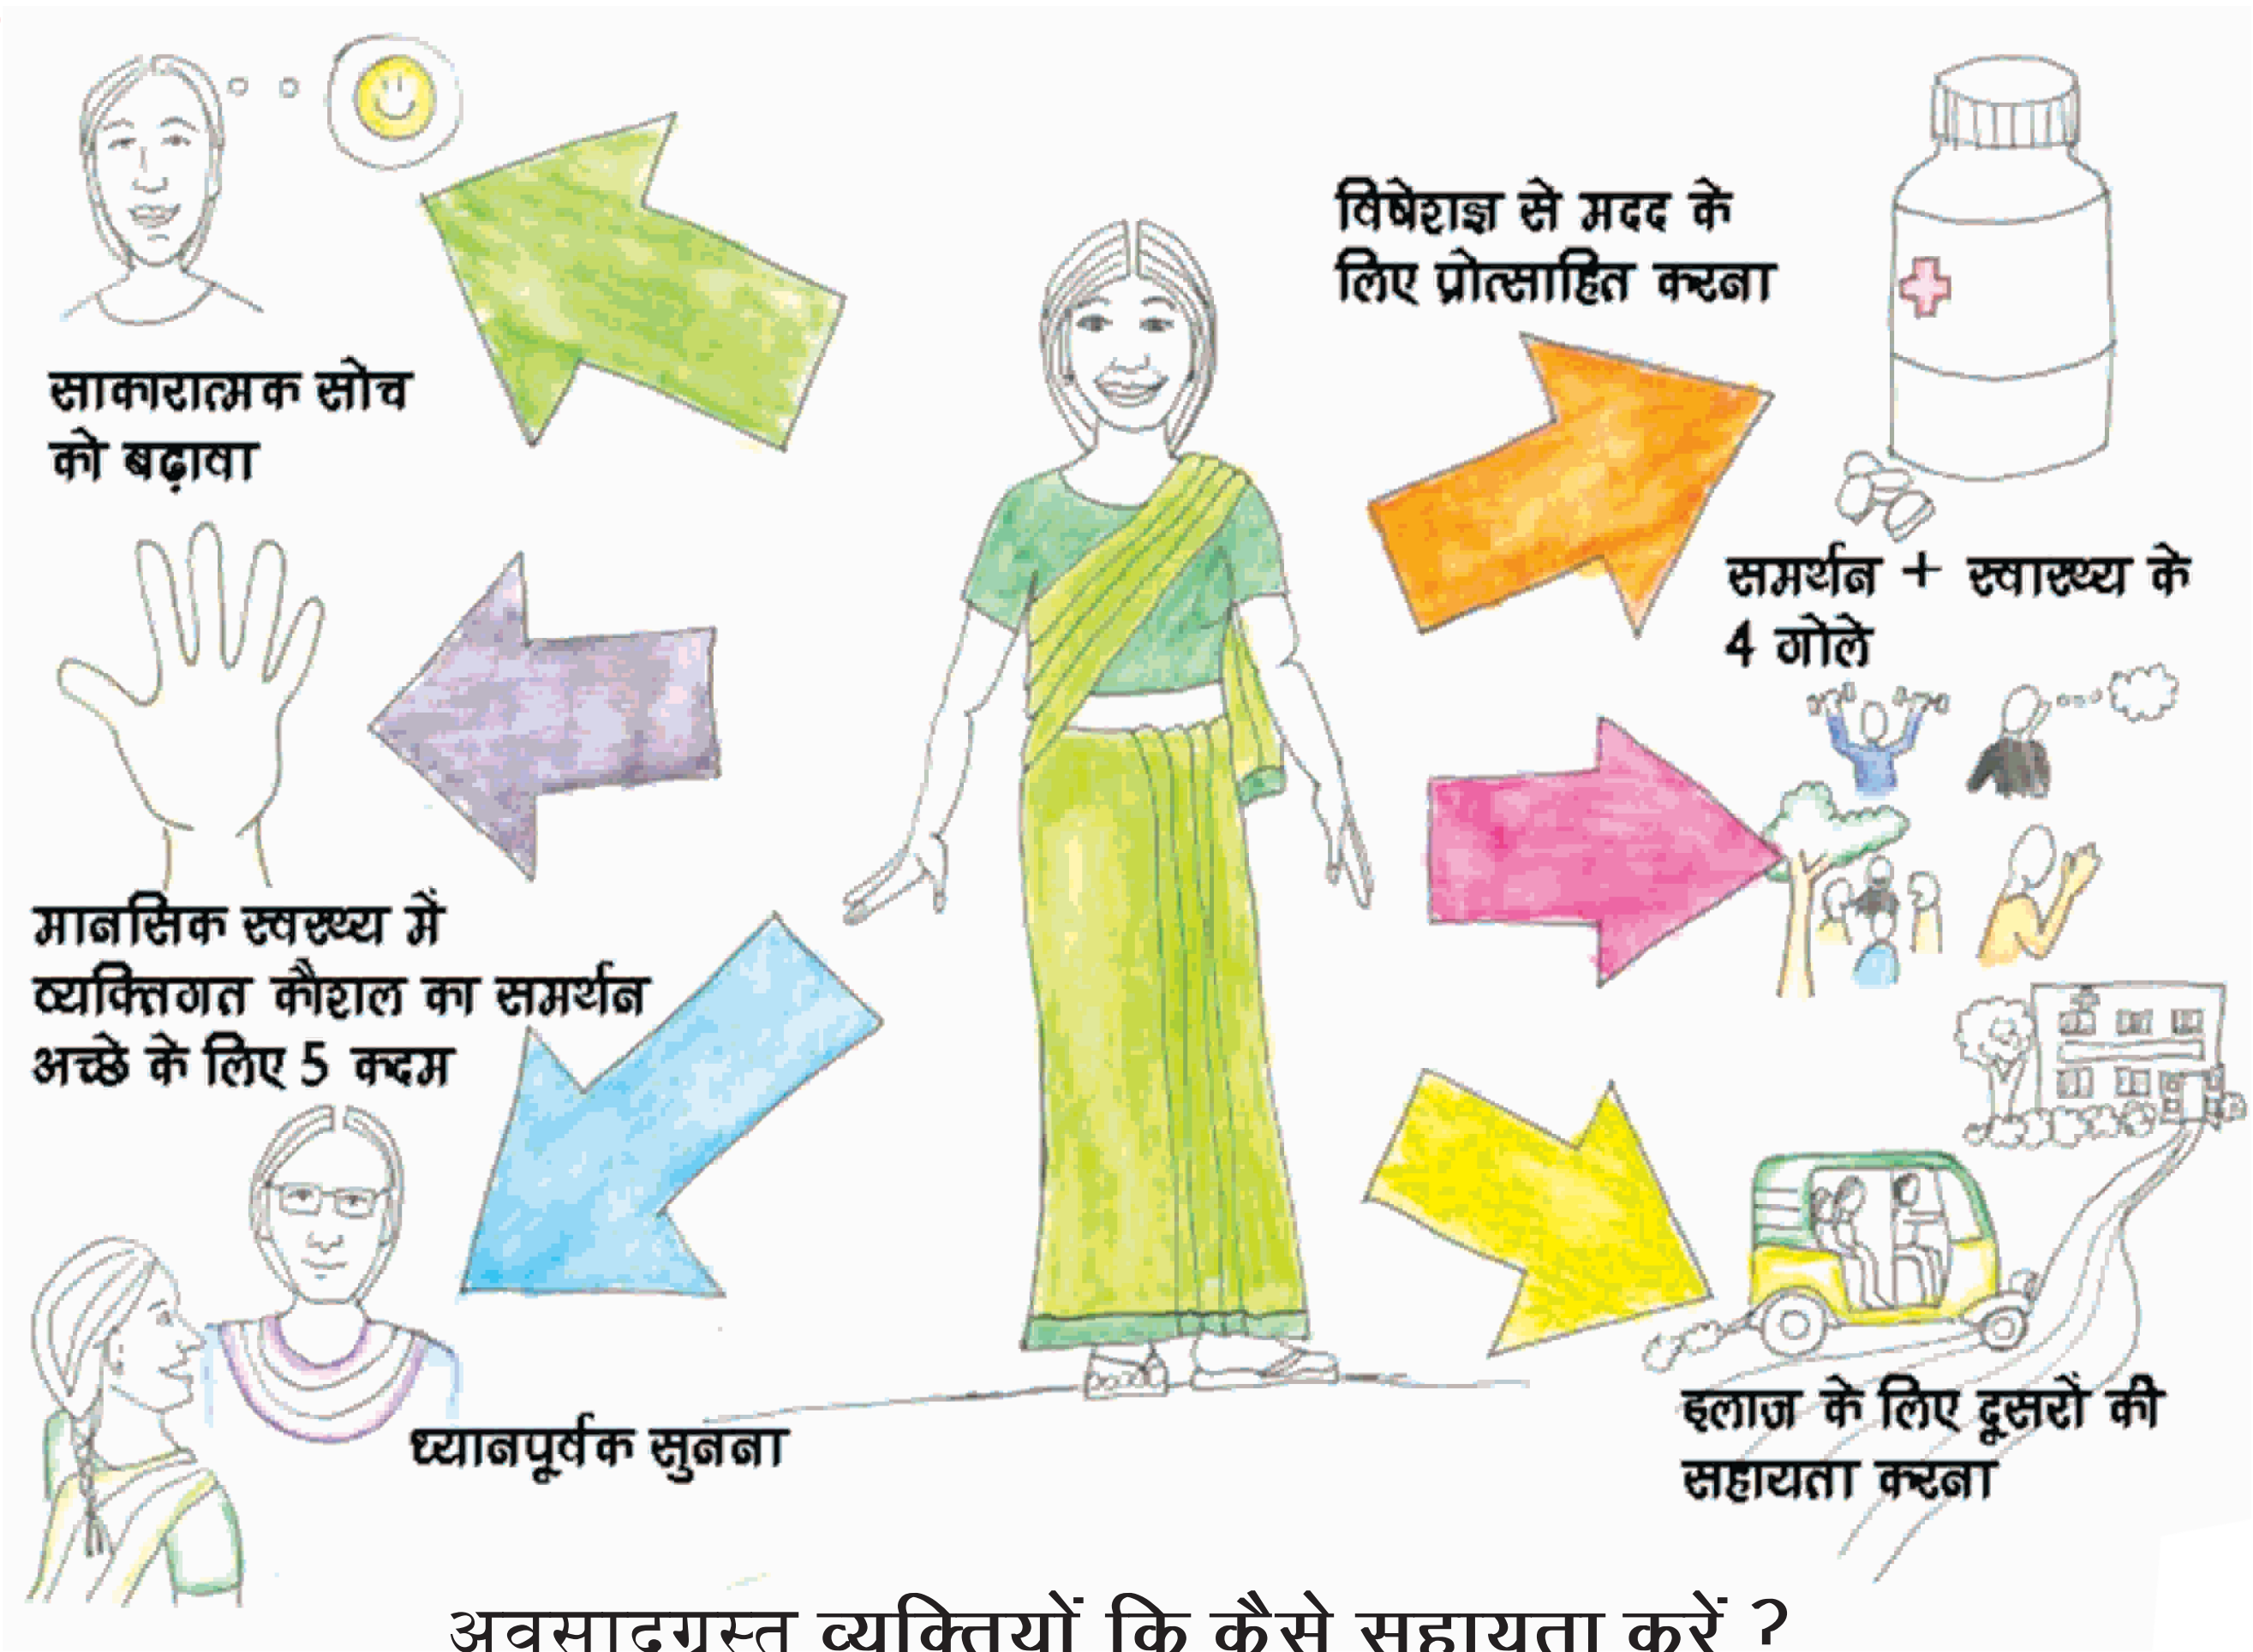 साकारात्मक सोच
को बढ़ावा
विषेशज्ञ से मदद के
लिए प्रोत्साहित करना
समर्थन + स्वास्थ्य के
4 गोले
मानसिक स्वस्थ्य में
व्यक्तिगत कौशल का समर्थन
अच्छे के लिए 5 कदम
ध्यानपूर्वक सुनना
इलाज के लिए दूसरों की
सहायता करना
अवसादग्रस्त व्यक्तियों कि कैसे सहायता करें ?